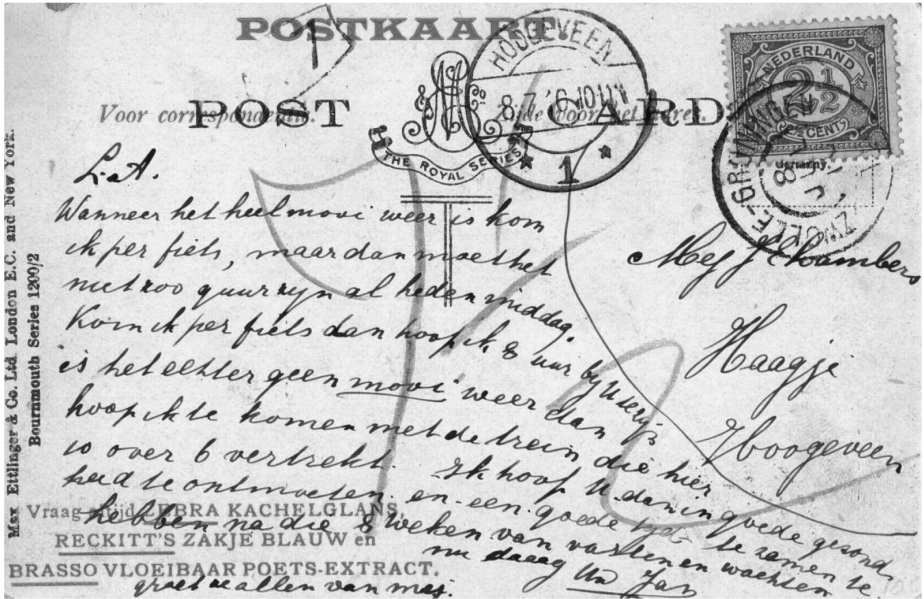 POSTKAART
POST CARD
Voor correspondentie. Zijde voor het adres.
& Co
THE ROYAL SERIES
HOOGEVEEN
8.7. 6 10
1
NEDERLAND
2 1/2
CENT
ZWOLLE-GRONINGEN
Germany.
Max Ettlinger & Co. Ltd. London E.C. and New York.
Bournmouth Series 1200/2
L.A.
Wanneer het heel mooi weer is kom
ik per fiets, maar dan moet het
niet zoo guur zijn als heden middag.
Kom ik per fiets dan hoop ik 8 uur bij U te zijn
is het echter geen mooi weer dan
hoop ik te komen met de trein die hier
10 over 6 vertrekt. Ik hoop U dan in goede gezond
heid te ontmoeten en een goede te zamen te
hebben na die 8 weken van vasten en wachten
nu daag Uw Jan
groet ze allen van mij.
Mej J Chambers
Haagje
Hoogeveen
Vraag altijd ZEBRA KACHELGLANS,
RECKITT'S ZAKJE BLAUW en
BRASSO VLOEIBAAR POETS-EXTRACT.